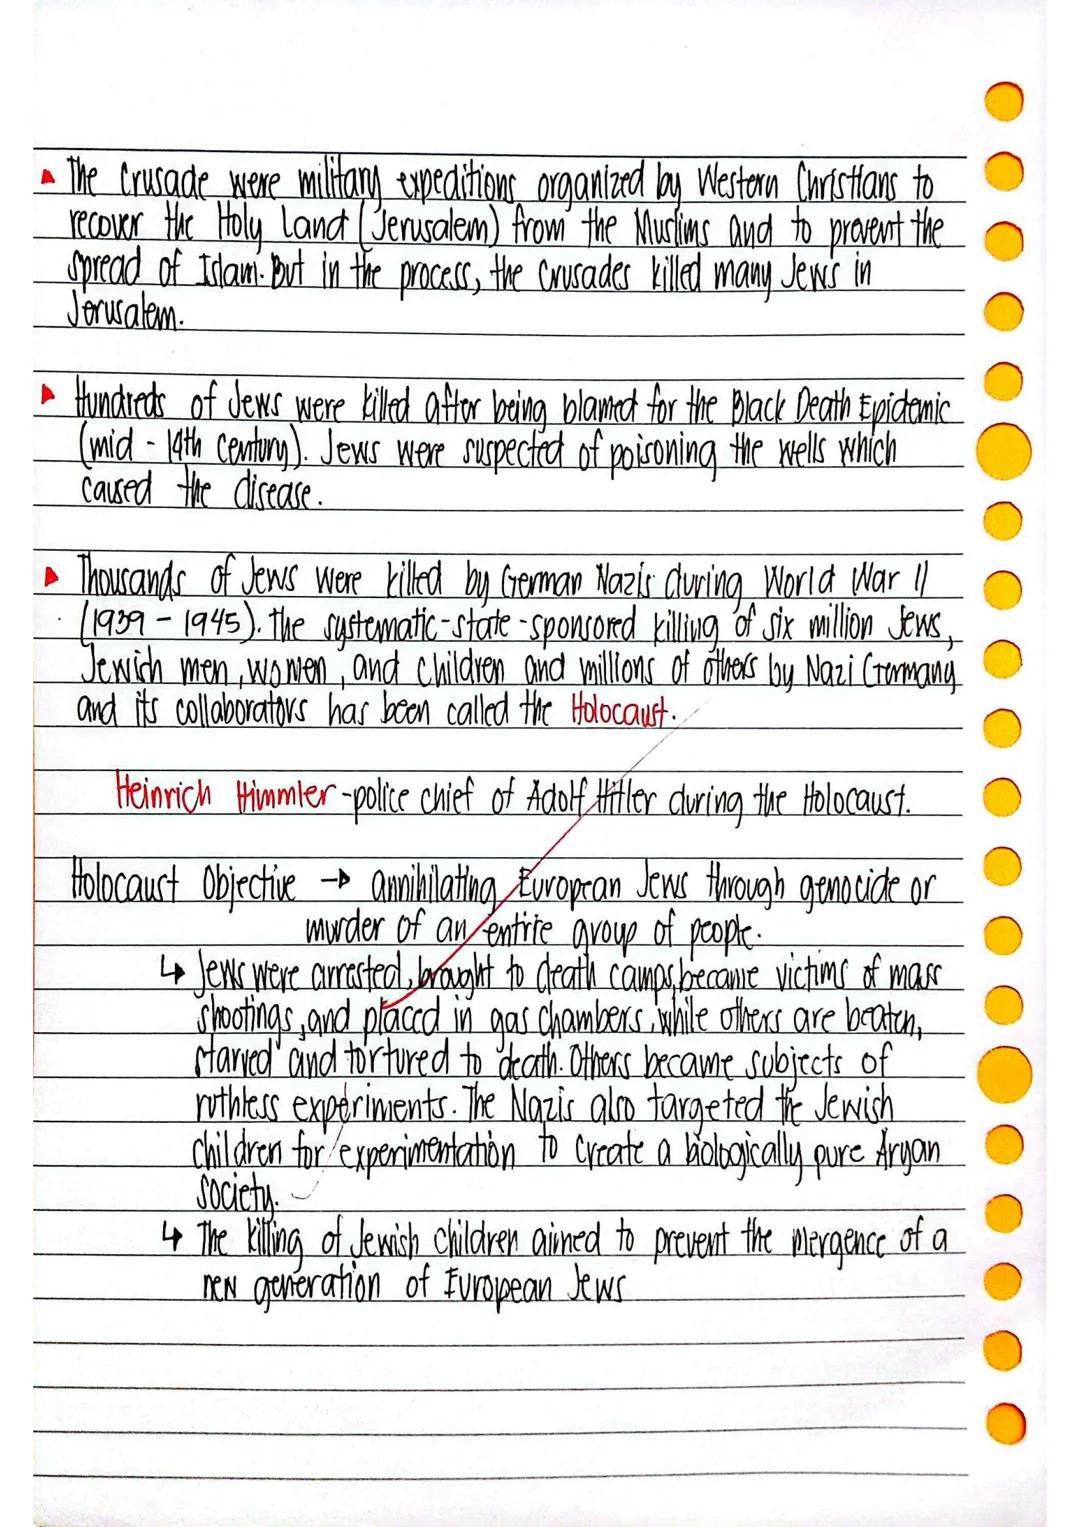 The Crusade were military expeditions organized by Western Christians to
recover the Holy Land (Jerusalem) from the Muslims and to prevent the
spread of Islam. But in the process, the Crusades killed many Jews in
Jerusalem.
Hundreds of Jews were killed after being blamed for the Black Death Epidemic
(mid - 14th Century). Jews were suspected of poisoning the wells which
caused the disease.
Thousands of Jews were killed by German Nazis during World War II
(1939 - 1945). The systematic-state-sponsored killing of six million Jews,
Jewish men, women, and children and millions of others by Nazi Germany
and its collaborators has been called the Holocaust.
Heinrich Himmler -police chief of Adolf Hitler during the Holocaust.
Holocaust Objective → annihilating European Jews through genocide or
murder of an entire group of people.
↳ Jews were arrested, brought to death camps, became victims of mass
shootings, and placed in gas chambers, while others are beaten,
starved and tortured to death. Others became subjects of
ruthless experiments. The Nazis also targeted the Jewish
children for experimentation to create a biologically pure Aryan
society.
↳ The killing of Jewish children aimed to prevent the mergence of a
new generation of European Jews